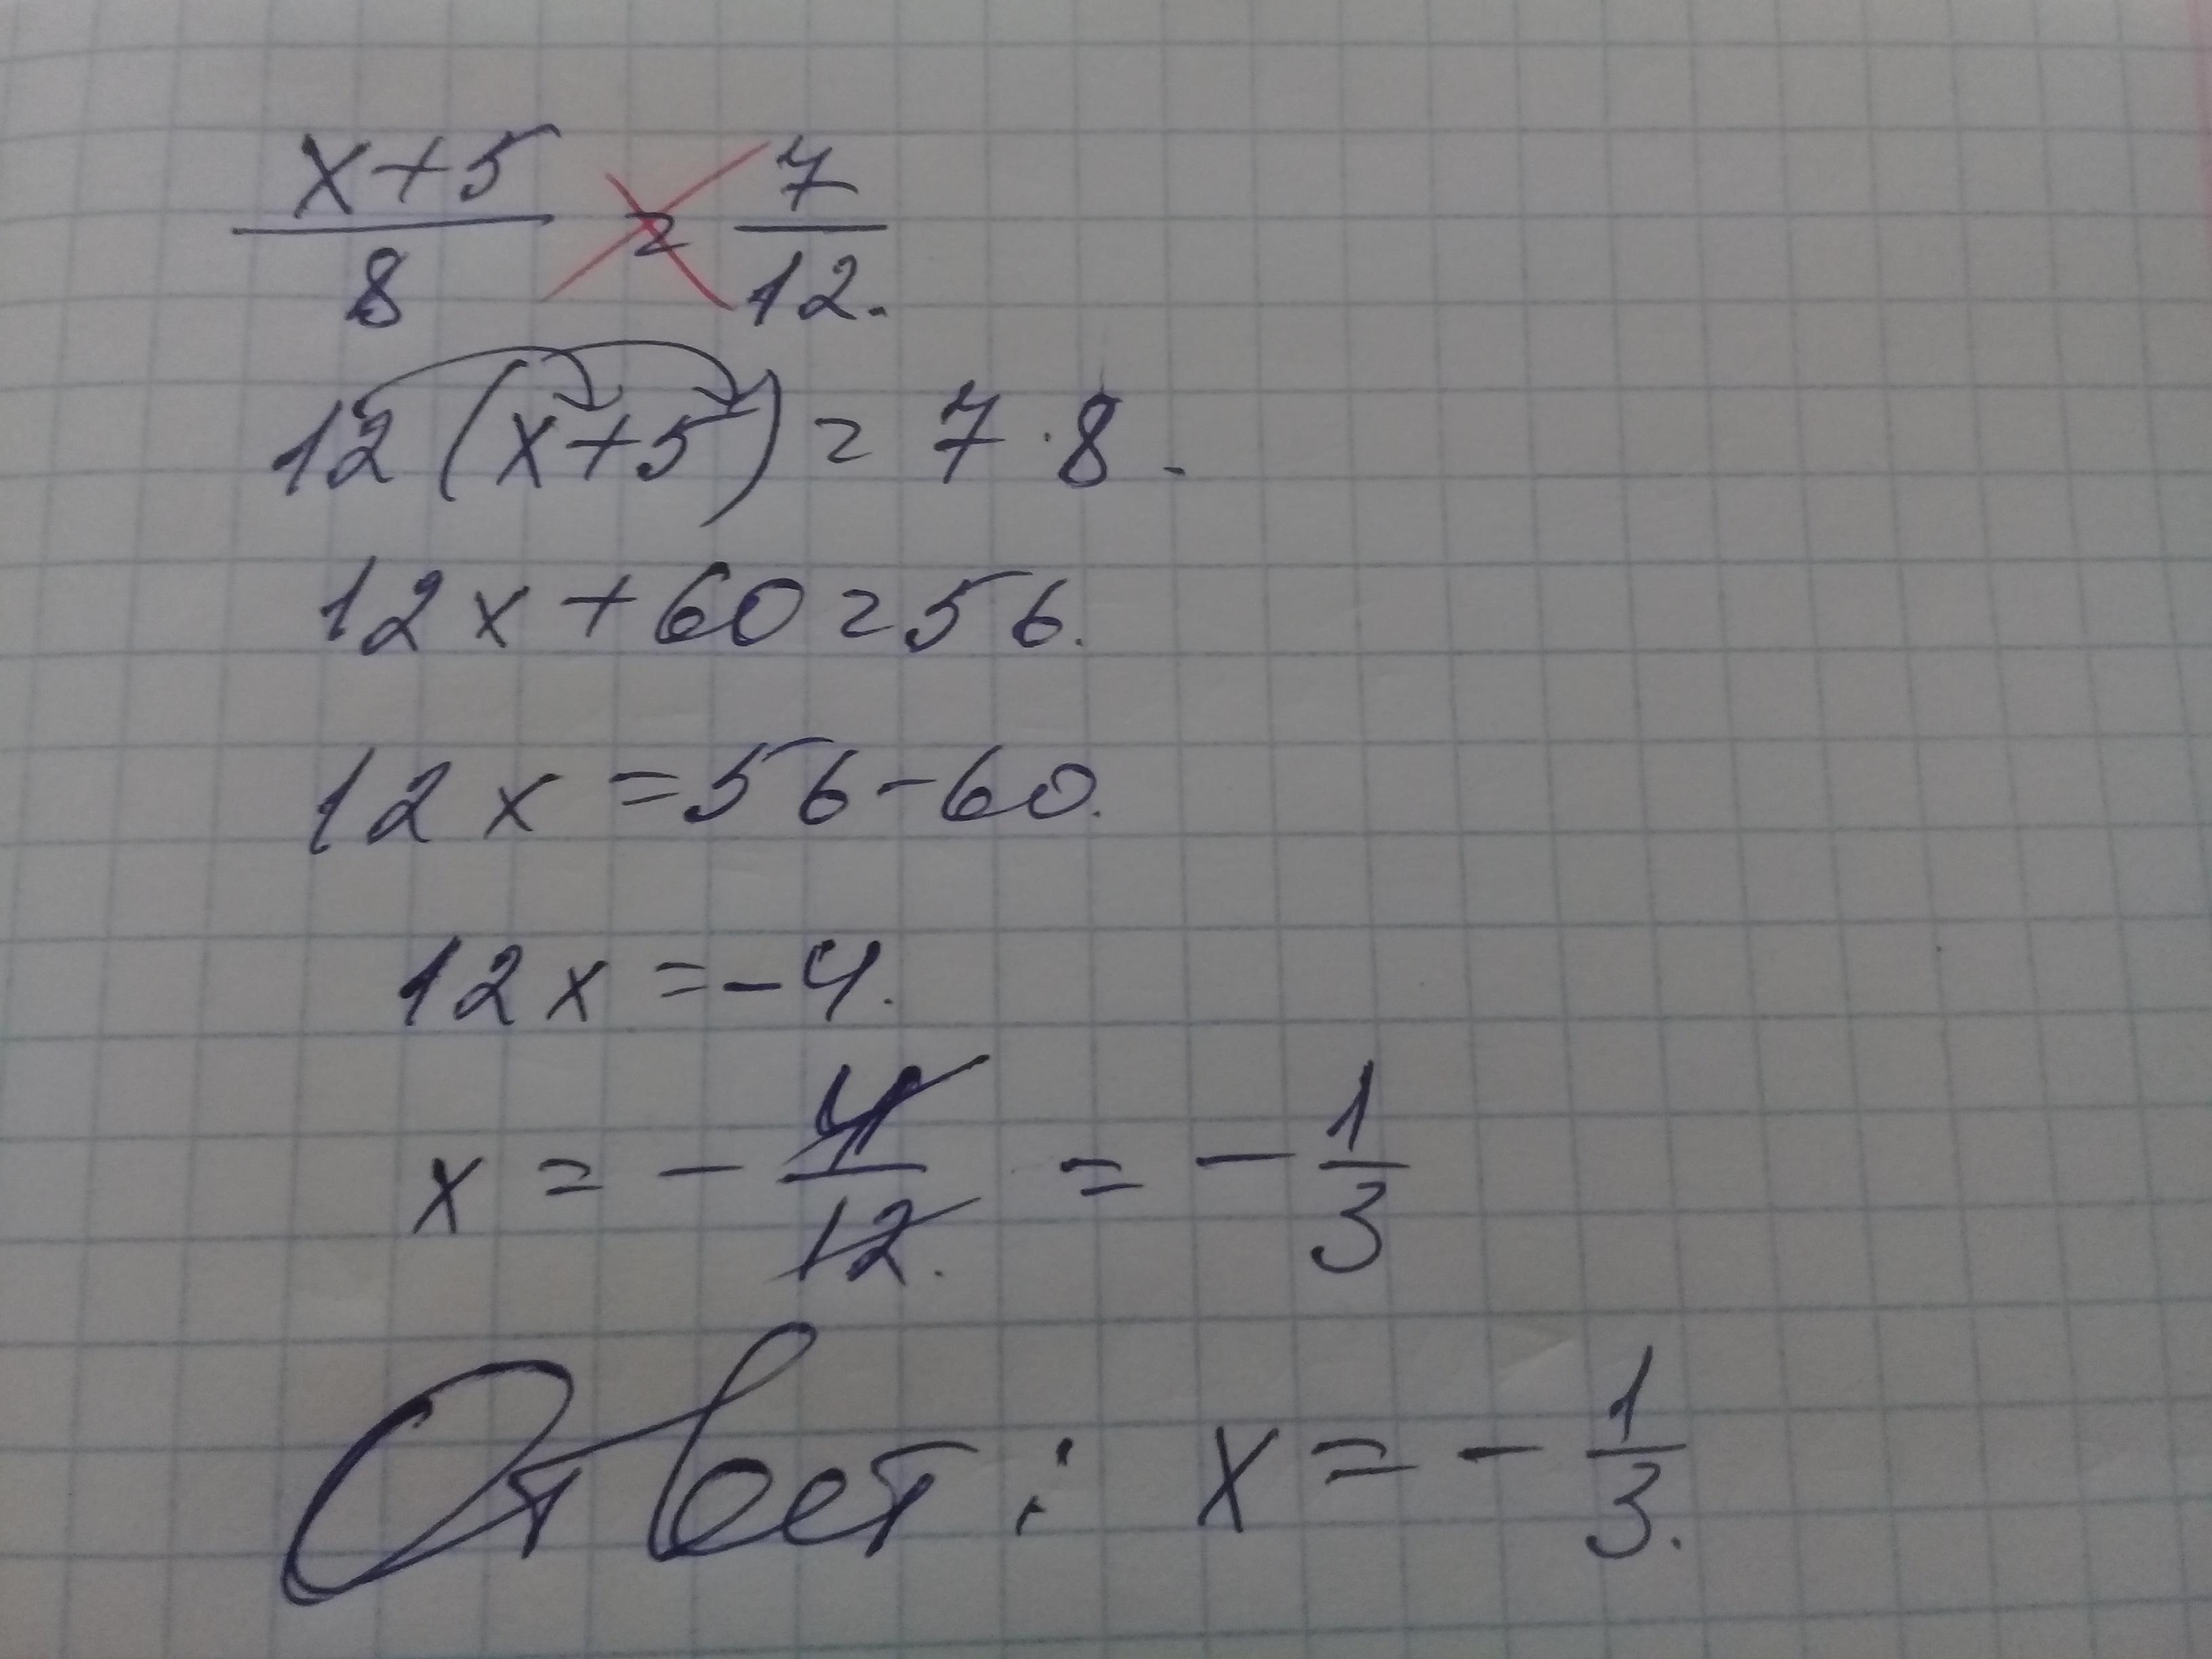 (x+5)/8 = 7/12.
12(x+5) = 7·8.
12x+60=56.
12x=56-60.
12x=-4.
x = - 4/12. = - 1/3
Ответ: x = - 1/3.